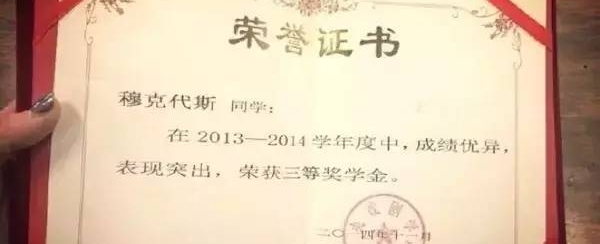 荣誉证书
穆克代斯 同学：
在 2013—2014 学年度中，成绩优异，
表现突出，荣获三等奖学金。
二〇一四年十一月